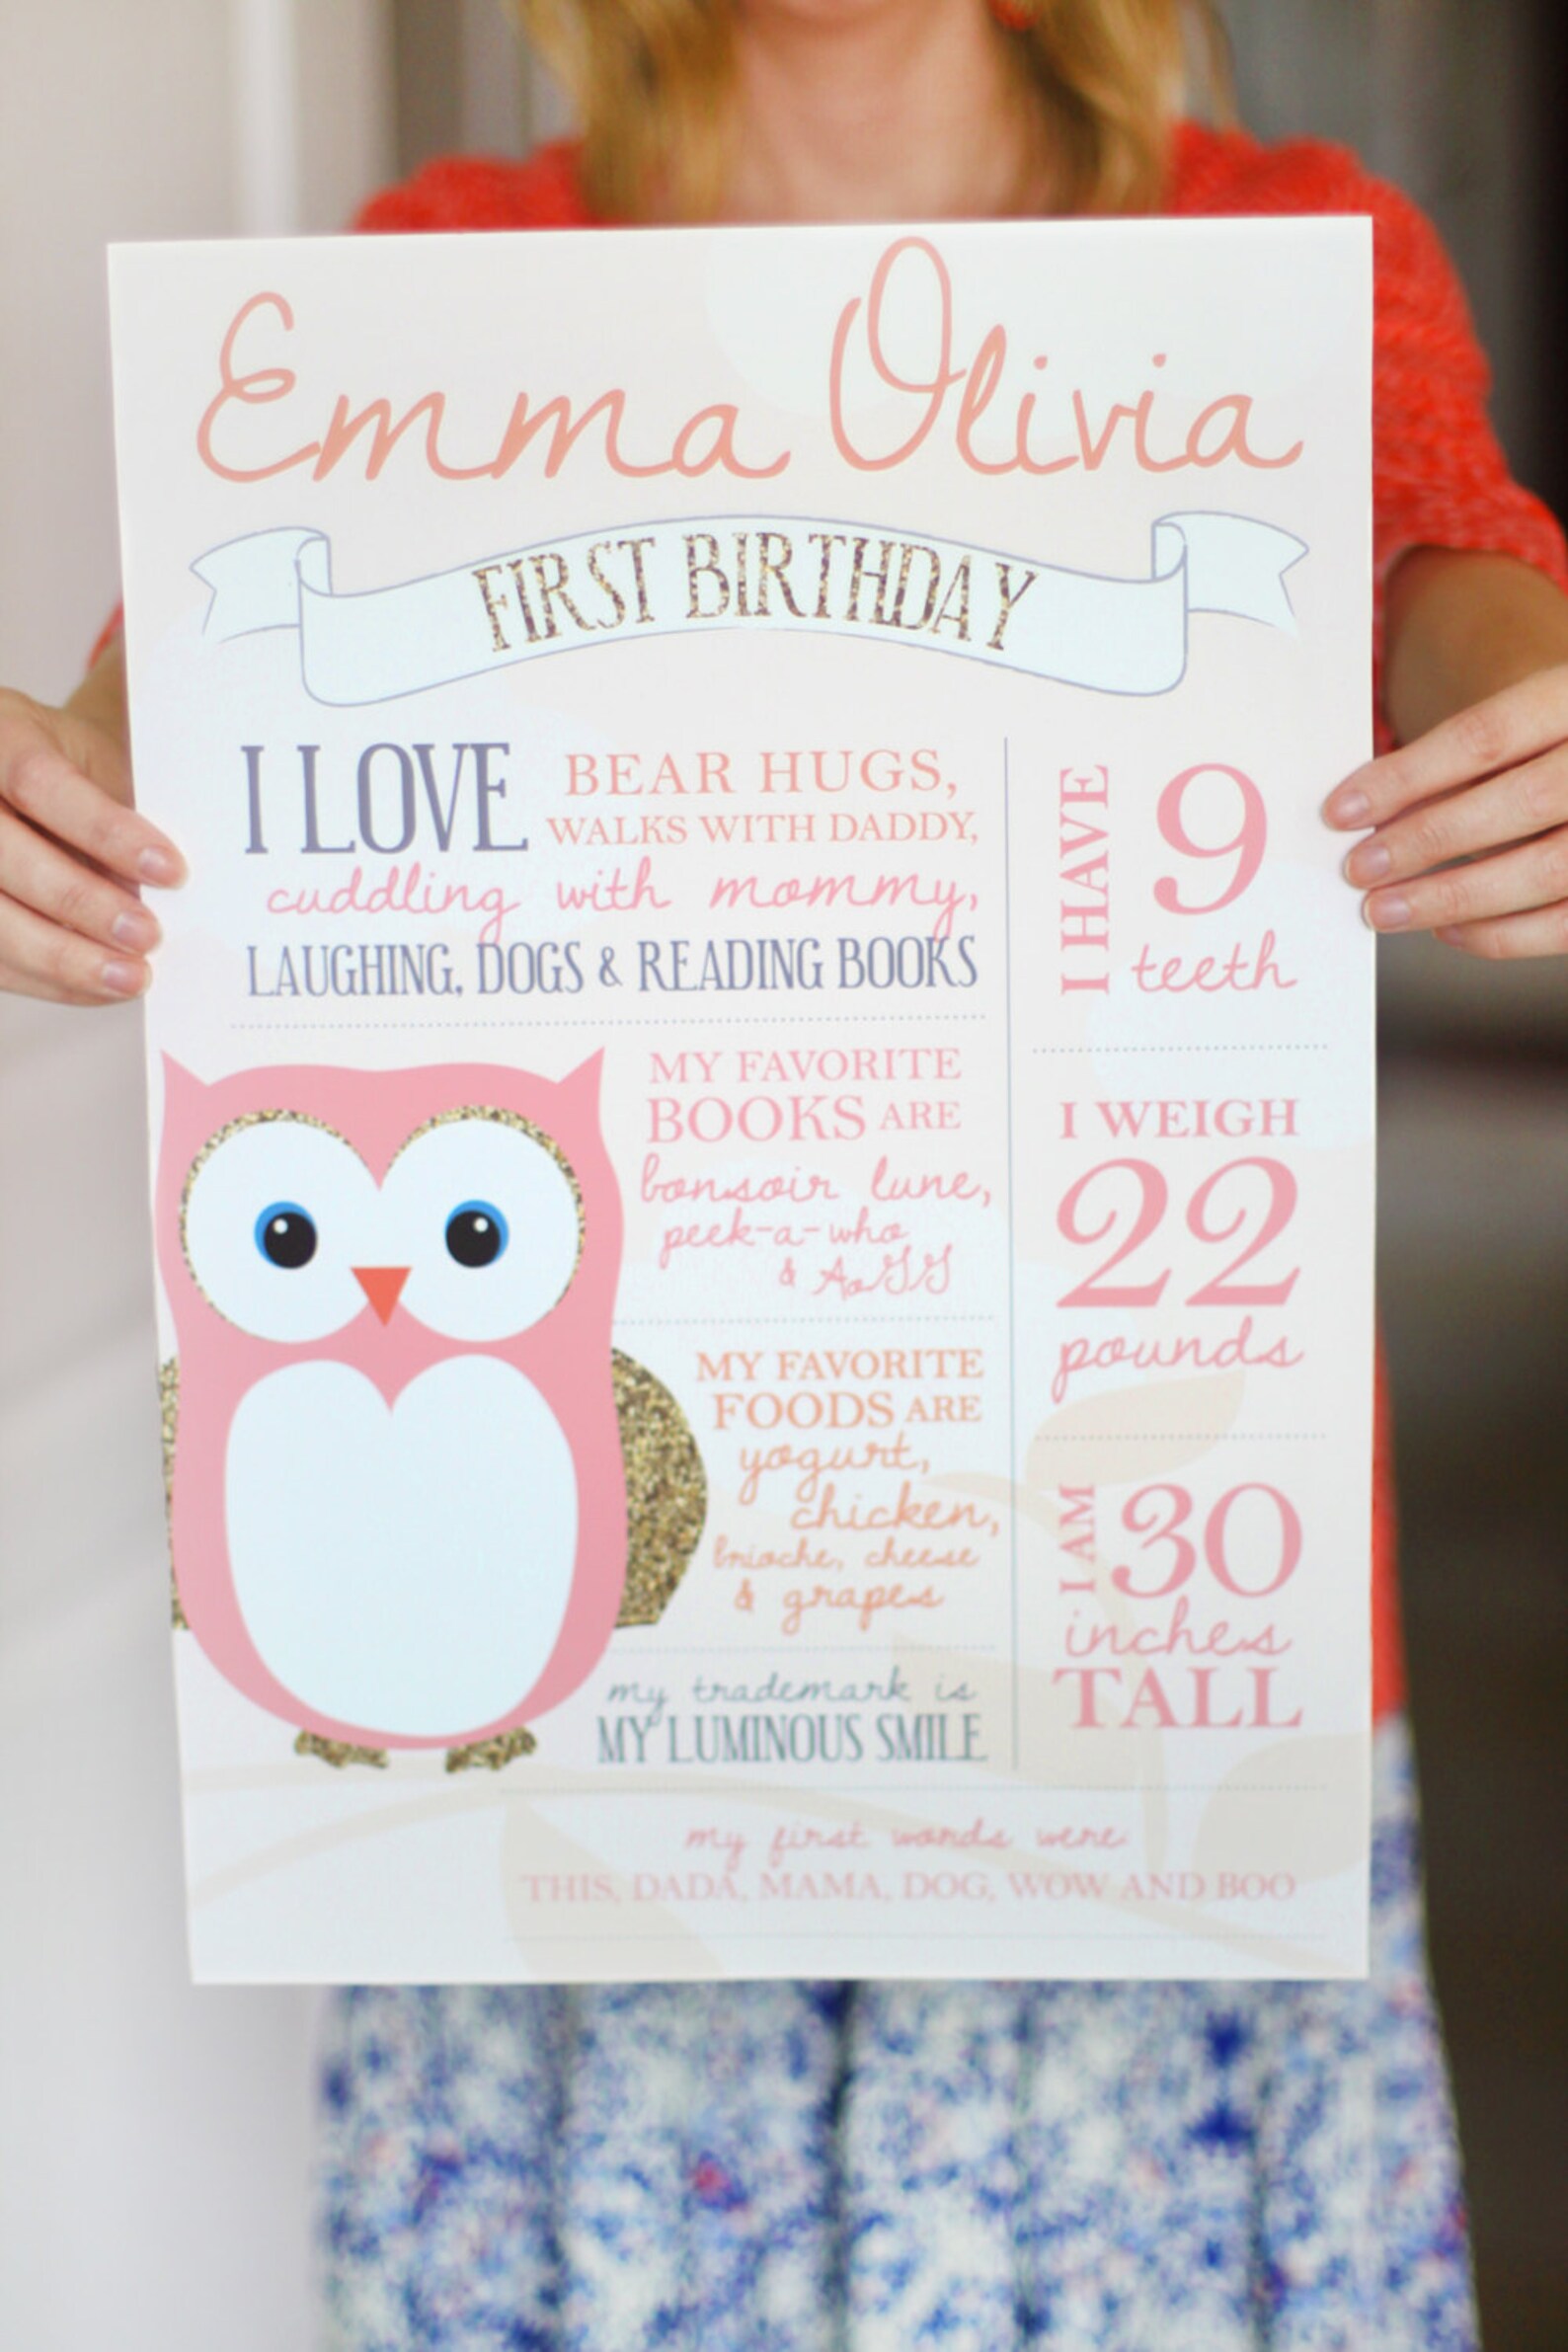 Emma Olivia
FIRST BIRTHDAY
I LOVE BEAR HUGS,
WALKS WITH DADDY,
cuddling with mommy,
LAUGHING, DOGS & READING BOOKS
MY FAVORITE
BOOKS ARE
bonsoir lune,
peek-a-who
&
MY FAVORITE
FOODS ARE
yogurt,
chicken,
brioche, cheese
& grapes
my trademark is
MY LUMINOUS SMILE
I HAVE 9
teeth
I WEIGH
22
pounds
I AM 30
inches
TALL
my first words were
THIS, DADA, MAMA, DOG, WOW AND BOO